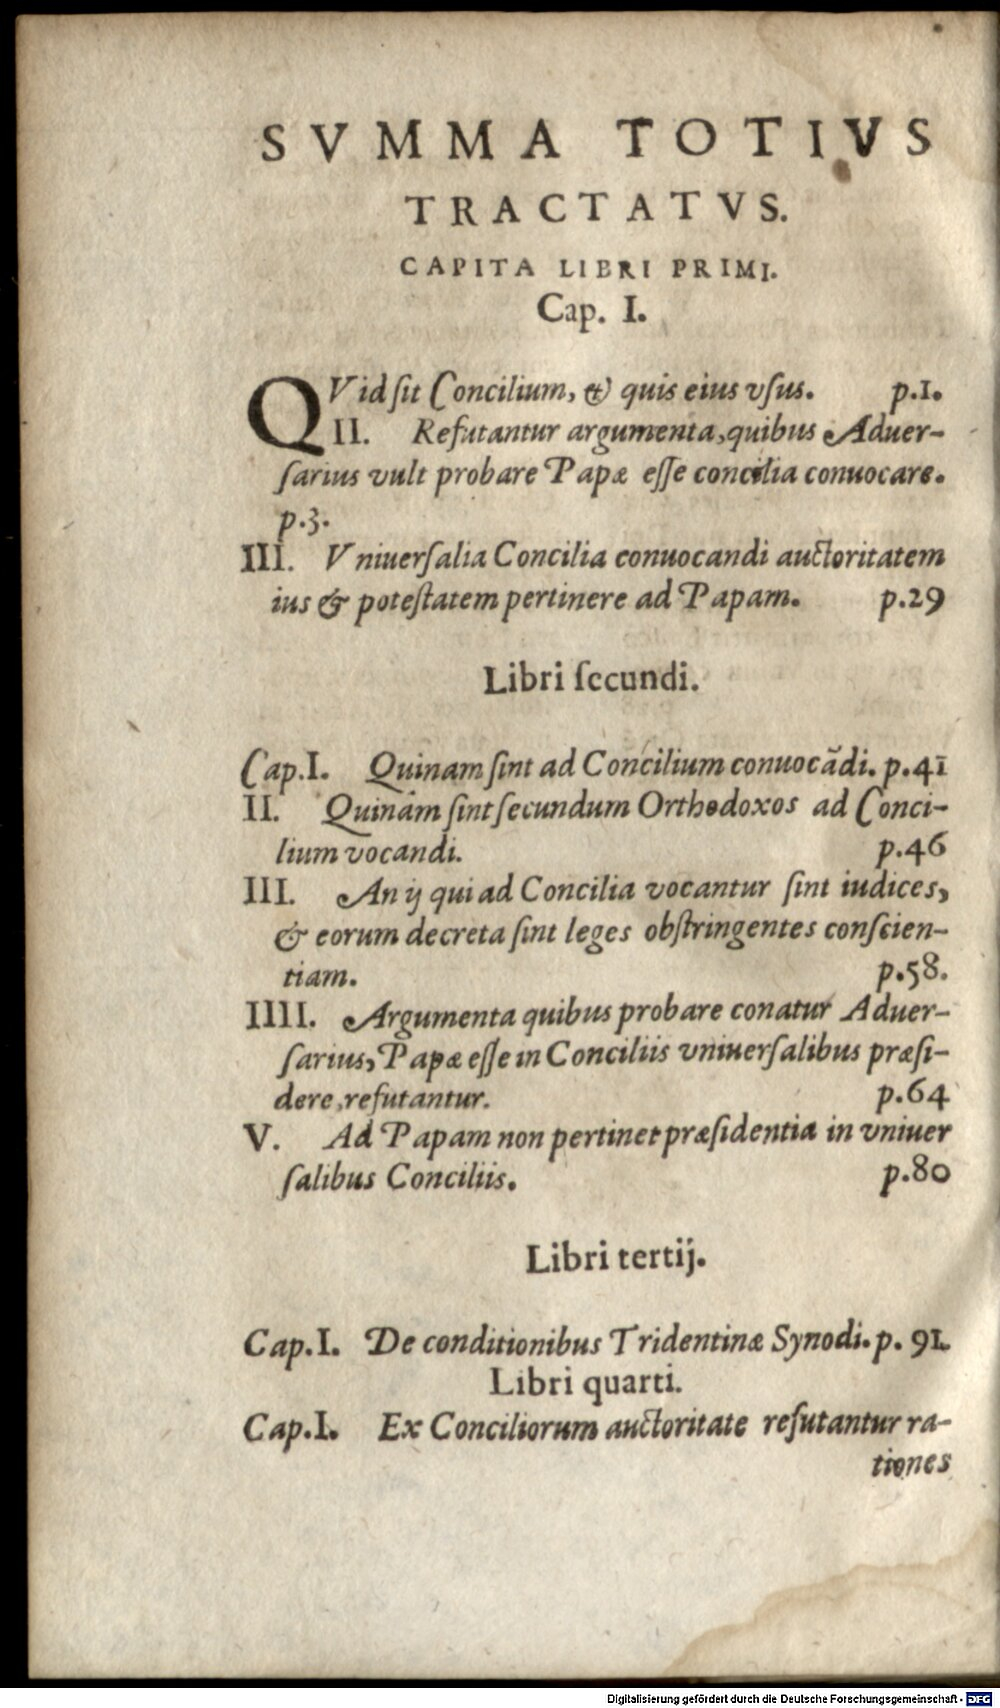 SVMMA TOTIVS
TRACTATVS.
CAPITA LIBRI PRIMI.
Cap. I.
QVid ſit Concilium, & quis eius vſus. p.1.
II. Refutantur argumenta, quibus Aduer-
ſarius vult probare Papæ eſſe concilia conuocare.
p.3.
III. Vniuerſalia Concilia conuocandi auctoritatem
ius & poteſtatem pertinere ad Papam. p.29
Libri ſecundi.
Cap.I. Quinam ſint ad Concilium conuocādi. p.41
II. Quinam ſint ſecundum Orthodoxos ad Conci-
lium vocandi. p.46
III. An ij qui ad Concilia vocantur ſint iudices,
& eorum decreta ſint leges obſtringentes conſcien-
tiam. p.58.
IIII. Argumenta quibus probare conatur Aduer-
ſarius, Papæ eſſe in Conciliis vniuerſalibus præſi-
dere, refutantur. p.64
V. Ad Papam non pertinet præſidentia in vniuer
ſalibus Conciliis. p.80
Libri tertij.
Cap.I. De conditionibus Tridentinæ Synodi. p. 91.
Libri quarti.
Cap.I. Ex Conciliorum auctoritate refutantur ra-
tiones
Digitalisierung gefördert durch die Deutsche Forschungsgemeinschaft - DFG